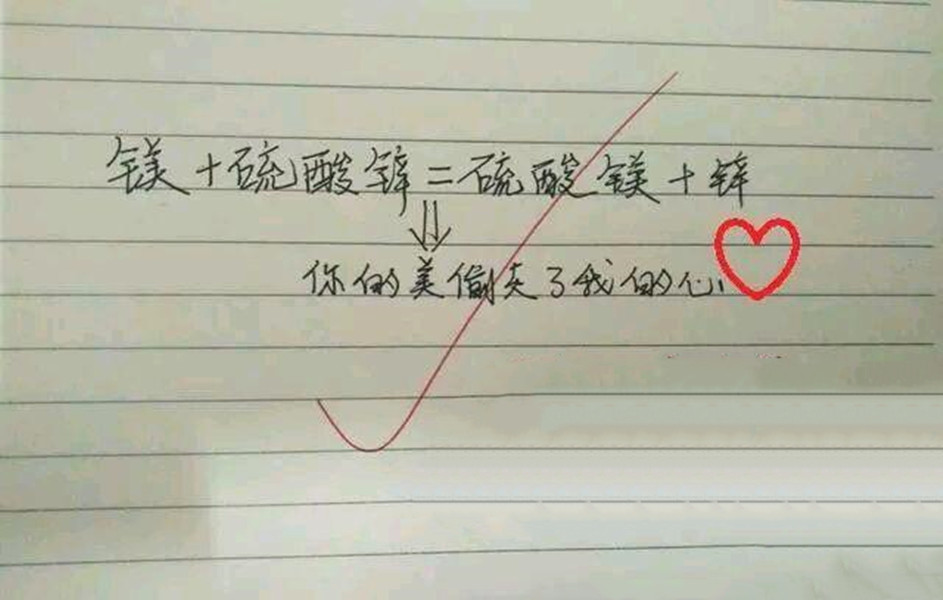 镁+硫酸锌=硫酸镁+锌
⇓
你的美偷走了我的心